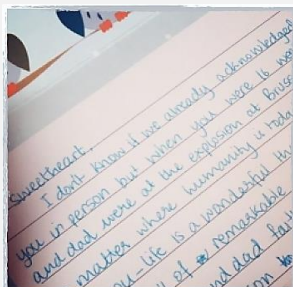 Sweetheart,
I don't know if we already acknowledged
you in person but when you were 16 
and dad were at the explosion at
matter where humanity is
life is a wonderful
of remarkable
and dad